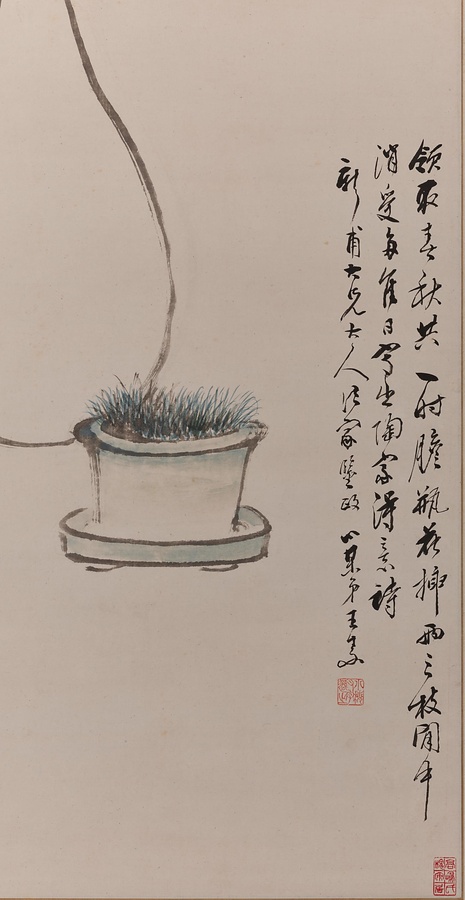 領取春秋共一時膽瓶花插兩三枝閒中
消受每有日寫出陶家得意詩
新甫大兄大人法家鑒政 小某弟王